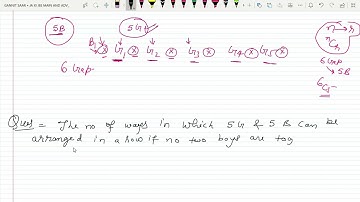 SANKET SAAR + JA IS BE MAIN AND ADV,
5B 5G B₁ n → r
ⓧ G₁ ⓧ G₂ ⓧ G₃ ⓧ G₄ ⓧ G₅ ⓧ ⁿCᵣ
6 Gap 6 Gap
→ 5B
⁶C₅
Ques = The no of ways in which 5G & 5B can be
arranged in a row if no two boys are tog